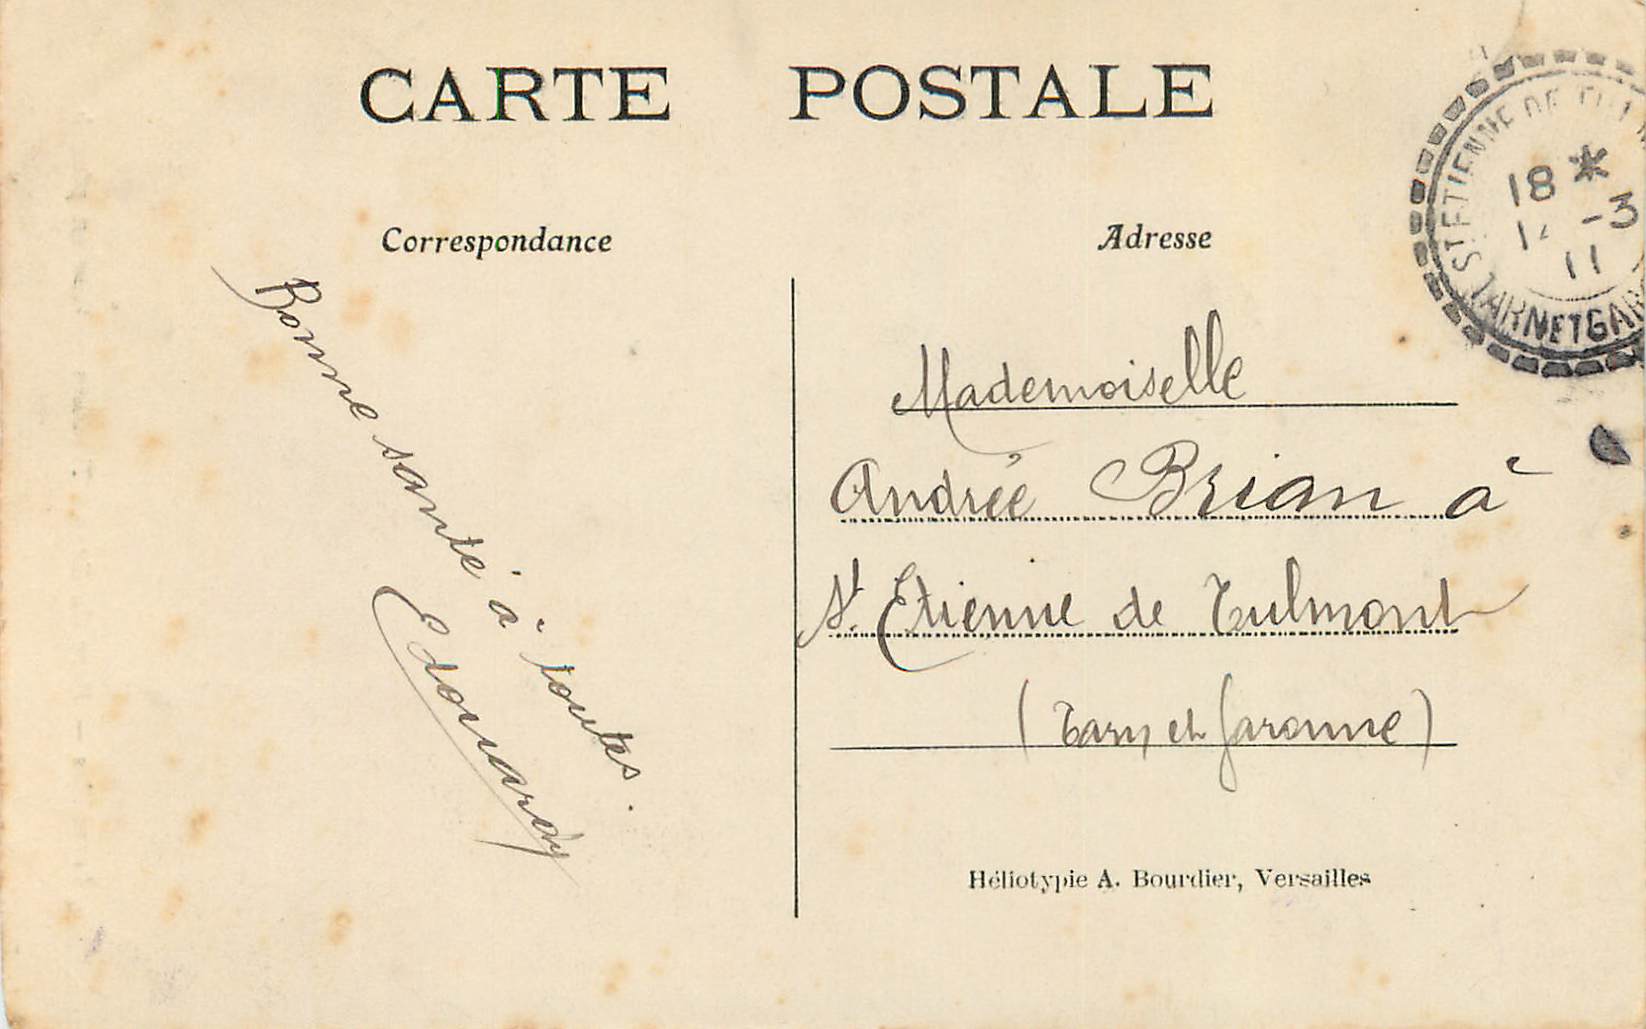 CARTE POSTALE
Correspondance
Adresse
Bonne santé à toutes.
Edouard
Mademoiselle
Andrée Brian à
St. Etienne de Tulmont
(Tarn et Garonne)
Héliotypie A. Bourdier, Versailles
ST ETIENNE DE
18 *
-3
11
TARN ET GAR